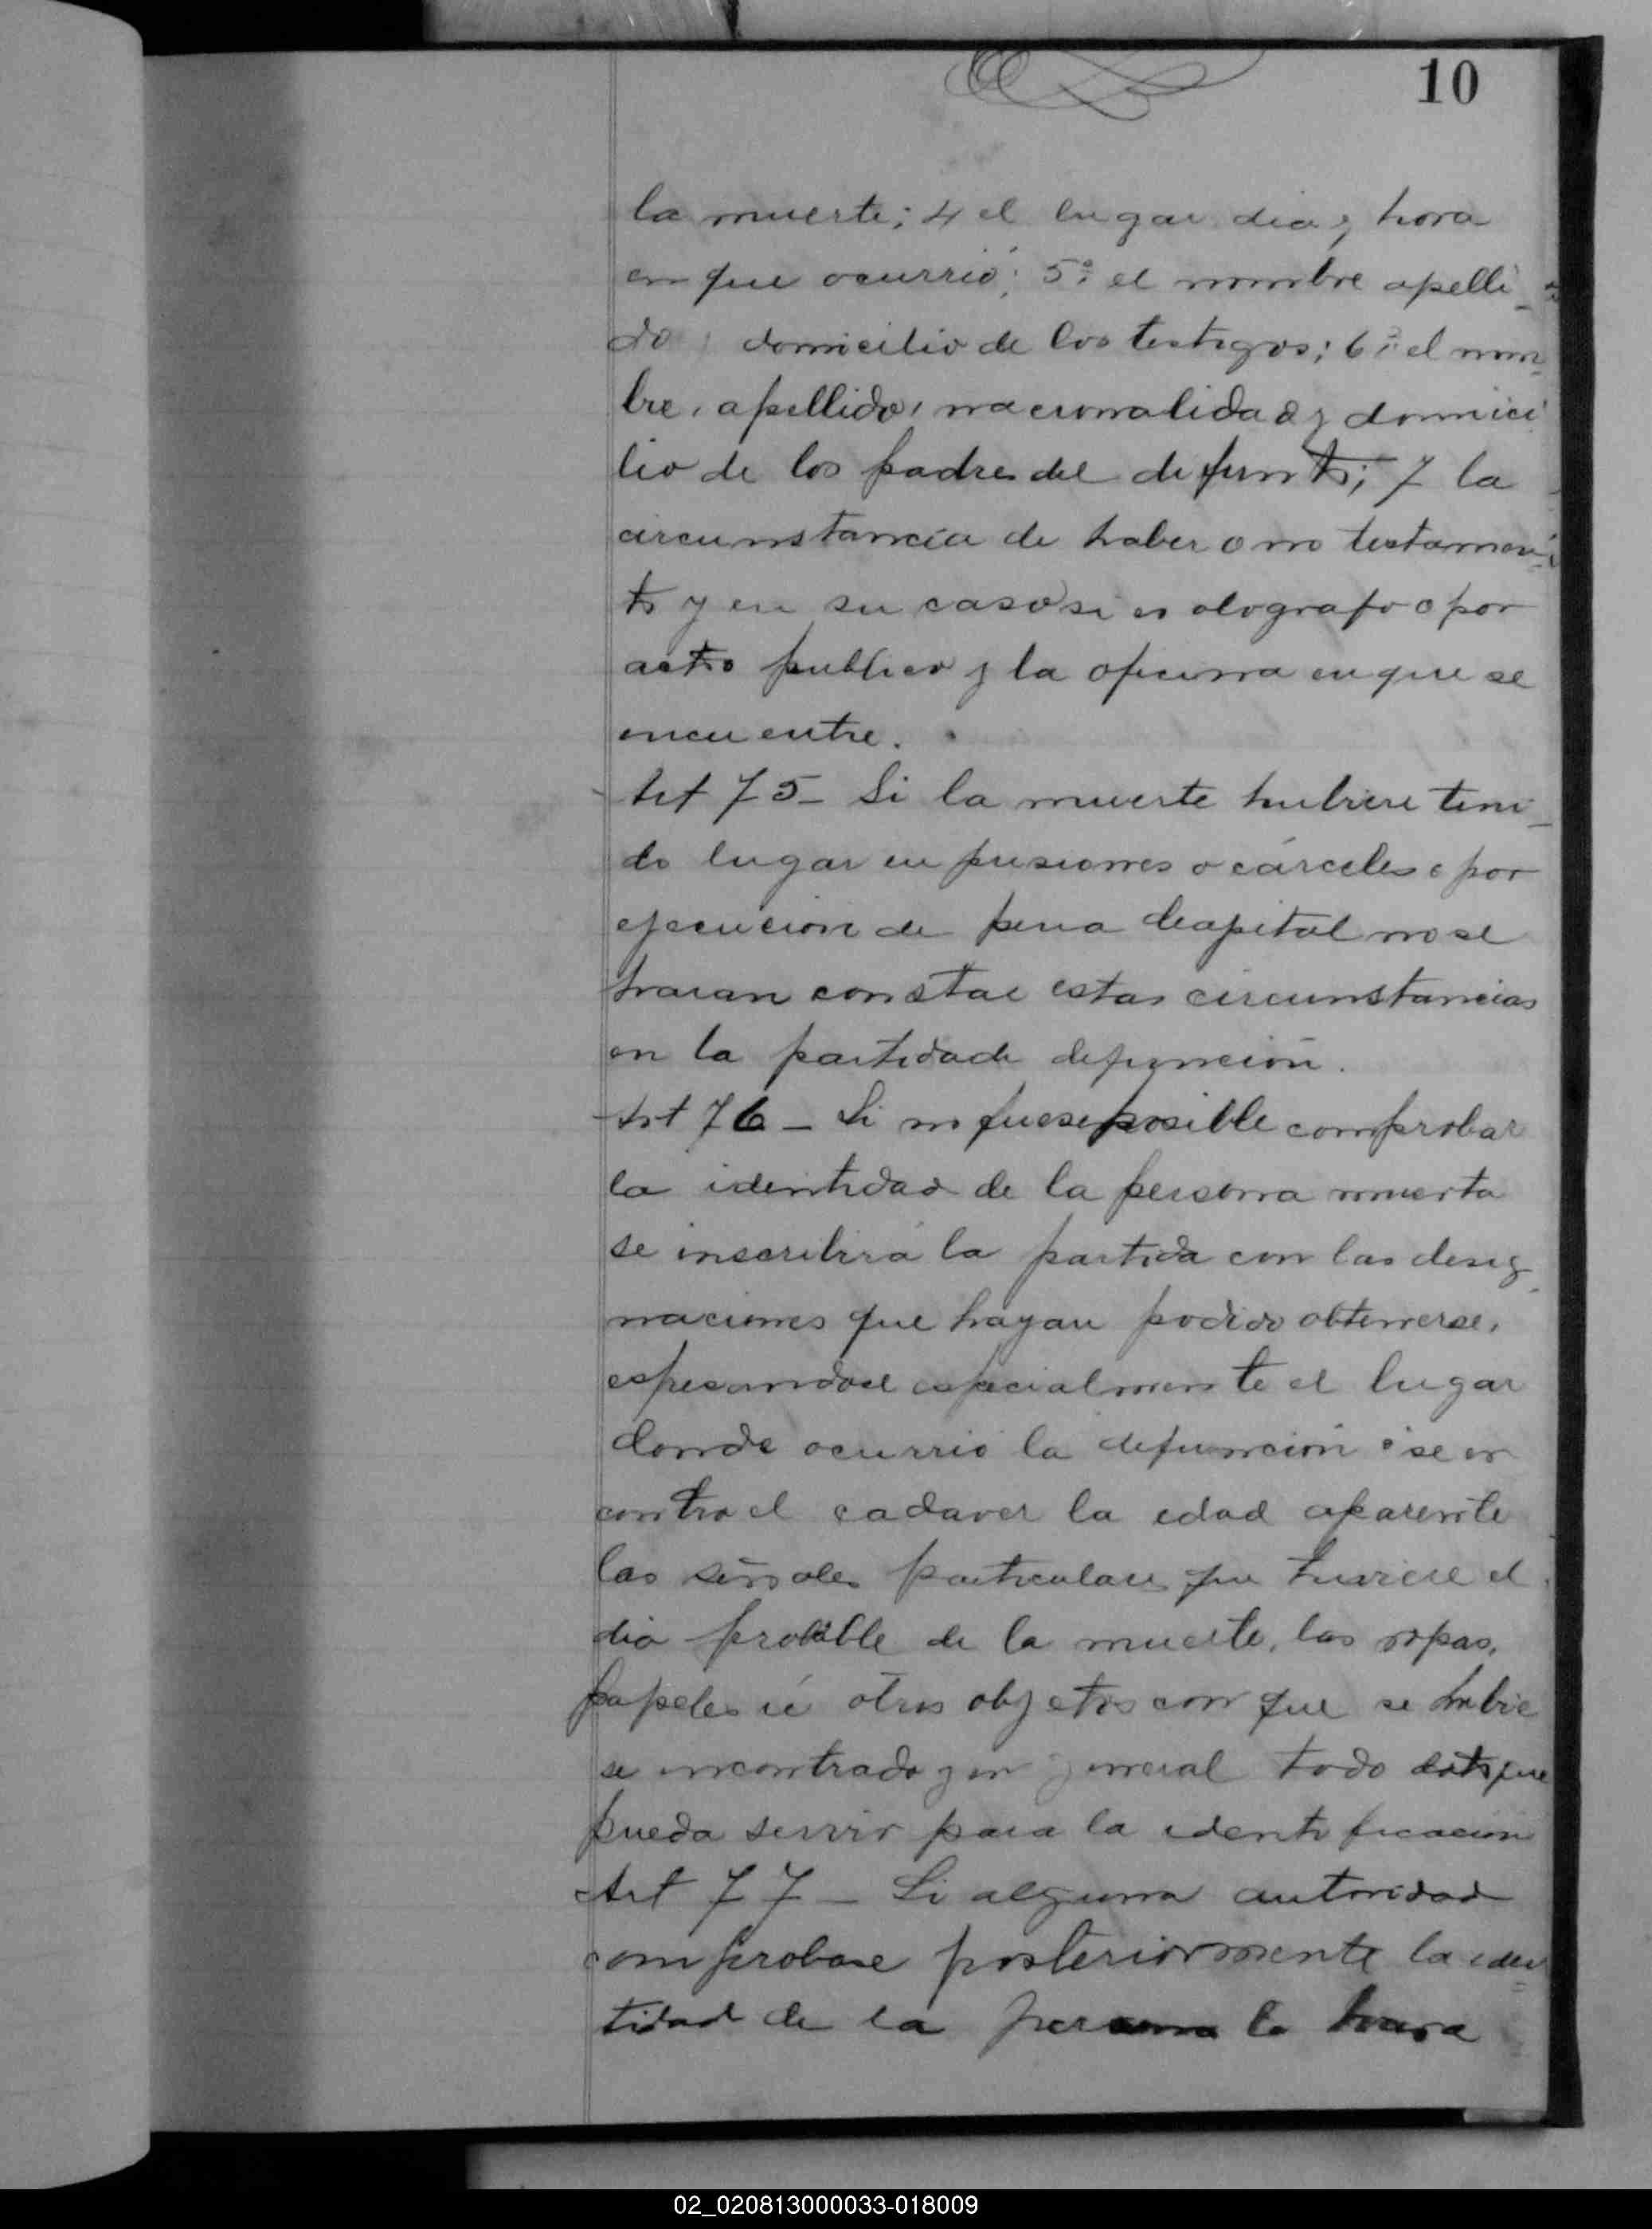 10
la muerte; 4 el lugar dia y hora
en que ocurrió; 5º el nombre apelli-
do domicilio de los testigos; 6º el nom-
bre, apellido, nacionalidad y domici
lio de los padres del difunto; 7 la
circunstancia de haber o no testamen-
to y en su caso si es olografo o por
acto publico y la oficina en que se
encuentre.
Art 75- Si la muerte hubiere teni-
do lugar en prisiones o cárceles o por
ejecucion de pena Capital no se
haran constar estas circunstancias
en la partida de defunción.
Art 76- Si no fuese posible comprobar
la identidad de la persona muerta
se inscribirá la partida con las desig-
naciones que hayan podido obtenerse,
espresandose especialmente el lugar
donde ocurrió la defunción ó se en
contro el cadaver la edad aparente
las señales particulares que tuviere el
dia probable de la muerte, las ropas,
papeles ú otros objetos con que se hubie
se encontrado y en jeneral todo dato que
pueda servir para la identificacion
Art 77- Si alguna autoridad
comprobase posteriormente la iden
tidad de la persona lo hara
02_020813000033-018009